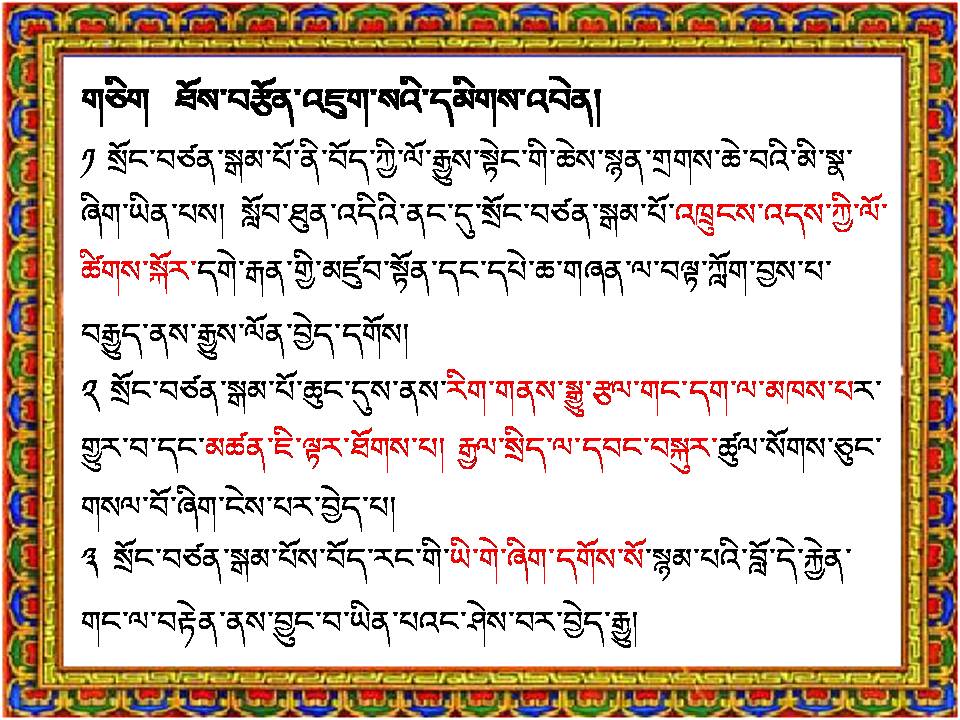 གཅིག  ཐོས་བརྩོན་འཇུག་སའི་དམིགས་འབེན།
༡ སྲོང་བཙན་སྒམ་པོ་ནི་བོད་ཀྱི་ལོ་རྒྱུས་སྟེང་གི་ཆེས་སྙན་གྲགས་ཆེ་བའི་མི་སྣ་
ཞིག་ཡིན་པས།  སློབ་ཐུན་འདིའི་ནང་དུ་སྲོང་བཙན་སྒམ་པོ་འཁྲུངས་འདས་ཀྱི་ལོ་
ཚིགས་སྐོར་དགེ་རྒན་གྱི་མཛུབ་སྟོན་དང་དཔེ་ཆ་གཞན་ལ་བལྟ་ཀློག་བྱས་པ་
བརྒྱུད་ནས་རྒྱུས་ལོན་བྱེད་དགོས།
༢ སྲོང་བཙན་སྒམ་པོ་ཆུང་དུས་ནས་རིག་གནས་སྒྱུ་རྩལ་གང་དག་ལ་མཁས་པར་
གྱུར་བ་དང་མཚན་ཇི་ལྟར་ཐོགས་པ། རྒྱལ་སྲིད་ལ་དབང་བསྐུར་ཚུལ་སོགས་ཅུང་
གསལ་བོ་ཞིག་ངེས་པར་བྱེད་པ།
༣ སྲོང་བཙན་སྒམ་པོས་བོད་རང་གི་ཡི་གེ་ཞིག་དགོས་སོ་སྙམ་པའི་བློ་དེ་རྐྱེན་
གང་ལ་བརྟེན་ནས་བྱུང་བ་ཡིན་པའང་ཤེས་བར་བྱེད་རྒྱུ།